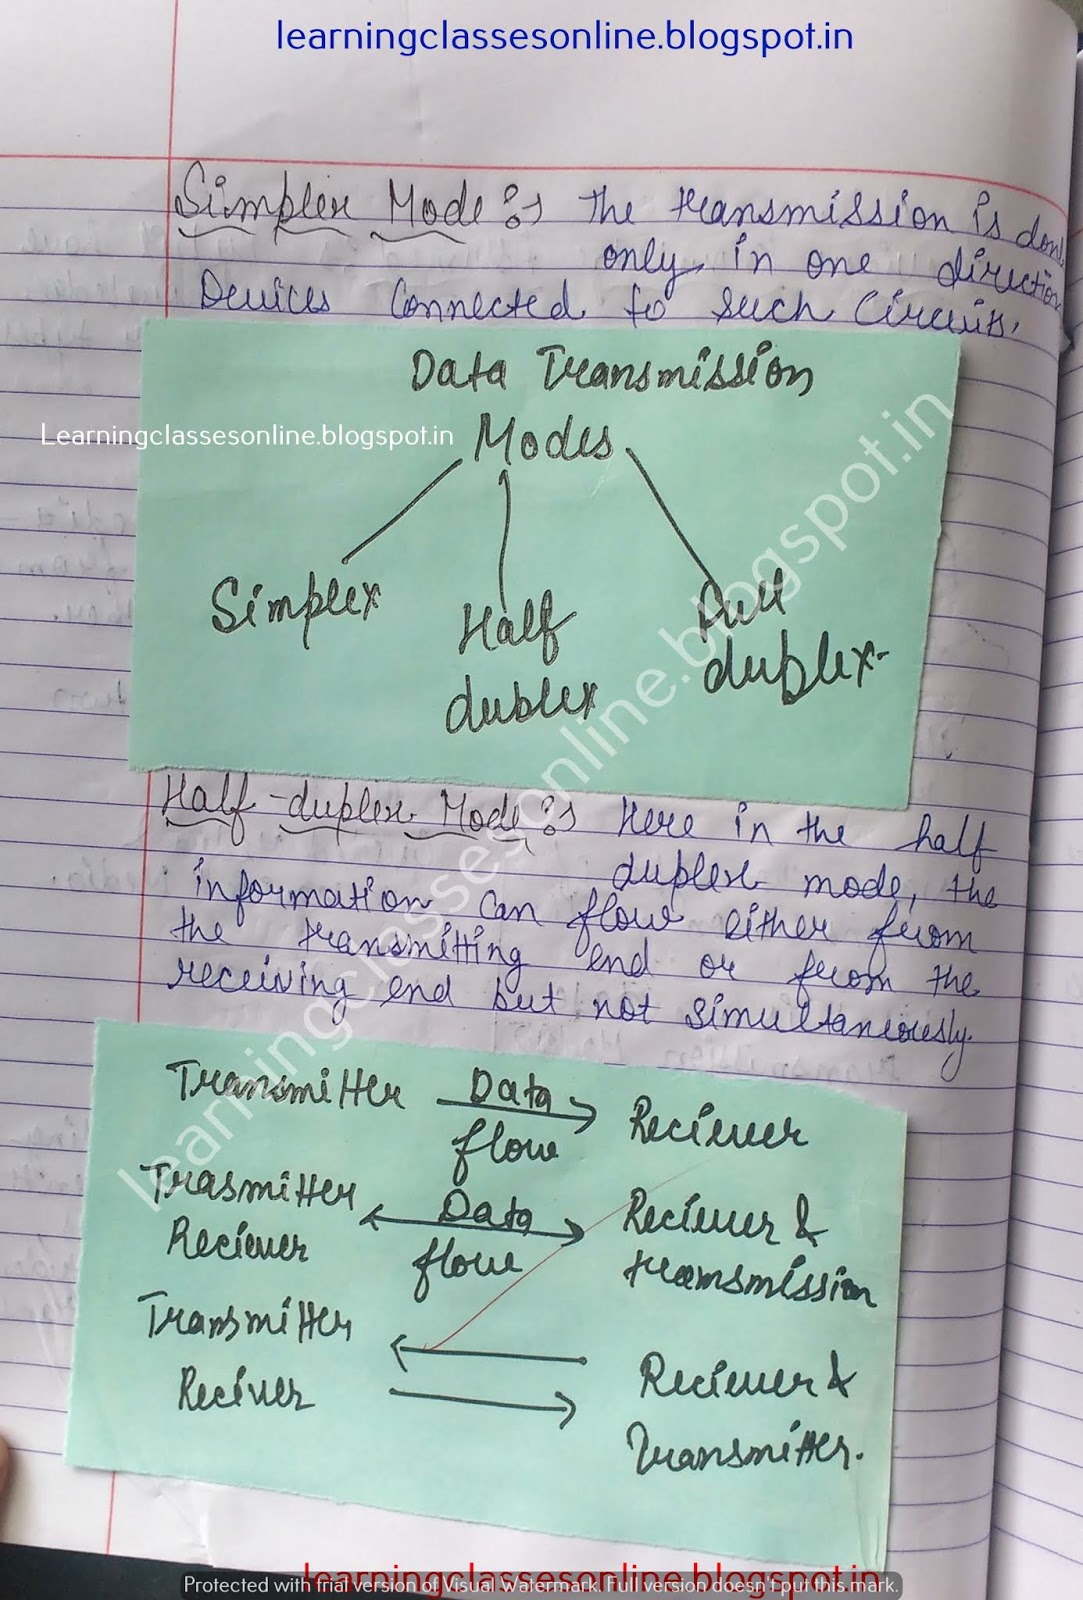 learningclassesonline.blogspot.in
Simplex Mode :→ the transmission is done
only in one direction
Devices connected to such Circuits.
Data Transmission
Learningclassesonline.blogspot.in
Modes
Simplex
Half
dublex
Full
duplex-
learningclassesonline.blogspot.in
Half-duplex Mode :→ Here in the half
duplex mode, the
information can flow either from
the transmitting end or from the
receiving end but not simultaneously.
Transmitter Data flow Reciever
Trasmitter Reciever Data flow Reciever & transmission
Transmitter Reciver Reciever & Transmitter.
learningclassesonline.blogspot.in
Protected with trial version of Visual Watermark. Full version doesn't put this mark.